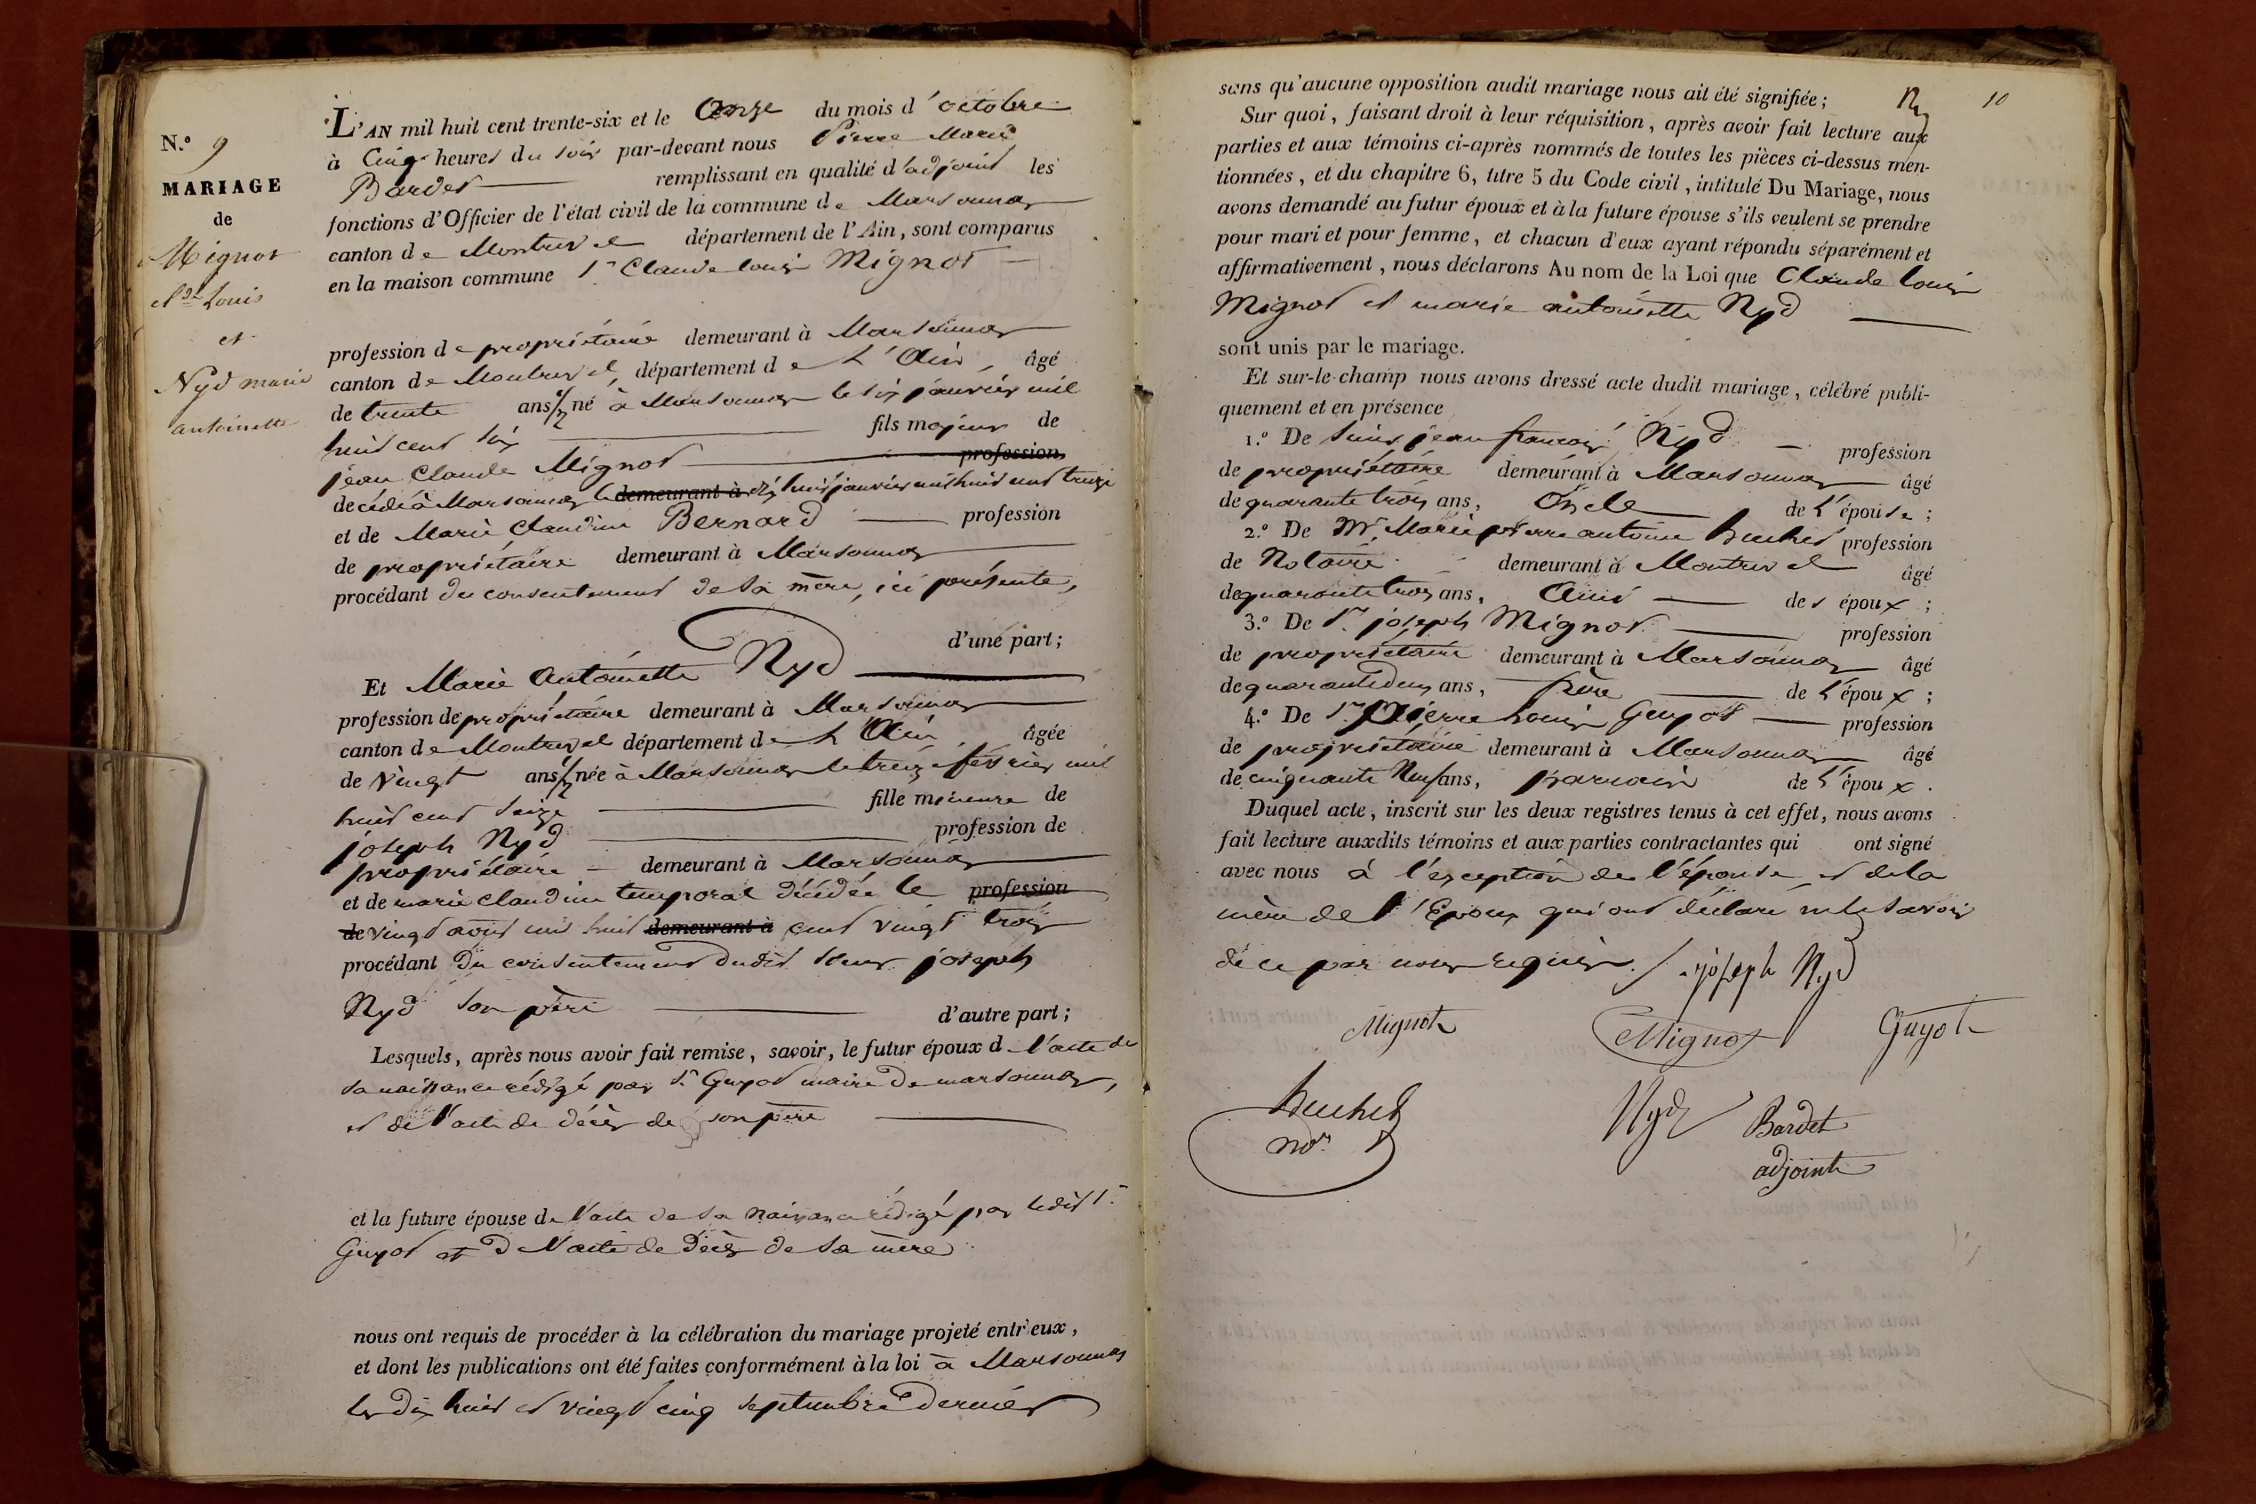 N.º 9
MARIAGE
de
Mignot
Cde Louis
et
Nyd marie
antoinette
L'AN mil huit cent trente-six et le Onze du mois d'octobre
à Cinq heures du soir par-devant nous Pierre Marie
Bardet remplissant en qualité d'adjoint les
fonctions d'Officier de l'état civil de la commune de Marsonnas
canton de Montrevel département de l'Ain, sont comparus
en la maison commune Sr Claude Louis Mignot
profession de propriétaire demeurant à Marsonnas
canton de Montrevel, département de L'Ain, âgé
de trente ans 1/2 né à Marsonnas le six janvier mil
huit cent six fils majeur de
jean Claude Mignot profession
decédé à Marsonnas le demeurant à dix huit janvier mil huit cent treize
et de Marie Claudine Bernard profession
de propriétaire demeurant à Marsonnas
procédant du consentement de sa mère, ici présente,
d'une part;
Et Marie Antoinette Nyd
profession de propriétaire demeurant à Marsonnas
canton de Montrevel département de L'Ain, âgée
de vingt ans 1/2 née à Marsonnas le treize février mil
huit cent seize fille mineure de
joseph Nyd profession de
propriétaire demeurant à Marsonnas
et de marie claudine temporal décédée le profession
de vingt août mil huit demeurant à cent vingt trois
procédant du consentement dudit sieur joseph
Nyd son père d'autre part;
Lesquels, après nous avoir fait remise, savoir, le futur époux d l'acte de
sa naissance rédigé par Sr Guyot maire de marsonnas,
et de l'acte de décès de son père
et la future épouse de l'acte de sa naissance rédigé par ledit Sr
Guyot et de l'acte de décès de sa mère
nous ont requis de procéder à la célébration du mariage projeté entr'eux,
et dont les publications ont été faites conformément à la loi à Marsonnas
les dix huit et vingt cinq septembre dernier
10
sans qu'aucune opposition audit mariage nous ait été signifiée;
Sur quoi, faisant droit à leur réquisition, après avoir fait lecture aux
parties et aux témoins ci-après nommés de toutes les pièces ci-dessus men-
tionnées, et du chapitre 6, titre 5 du Code civil, intitulé Du Mariage, nous
avons demandé au futur époux et à la future épouse s'ils veulent se prendre
pour mari et pour femme, et chacun d'eux ayant répondu séparément et
affirmativement, nous déclarons Au nom de la Loi que Claude Louis
Mignot et marie antoinette Nyd
sont unis par le mariage.
Et sur-le-champ nous avons dressé acte dudit mariage, célébré publi-
quement et en présence
1.º De sieur jean françois Nyd profession
de propriétaire demeurant à Marsonnas âgé
de quarante trois ans, Oncle de L'épouse;
2.º De Mr. Marie pierre antoine Buchet profession
de Notaire demeurant à Montrevel âgé
de quarante trois ans, Ami des époux;
3.º De Sr joseph Mignot profession
de propriétaire demeurant à Marsonnas âgé
de quarante deux ans, frère de L'époux;
4.º De Sr Pierre Louis Guyot profession
de propriétaire demeurant à Marsonnas âgé
de cinquante Neuf ans, parrain de L'époux.
Duquel acte, inscrit sur les deux registres tenus à cet effet, nous avons
fait lecture auxdits témoins et aux parties contractantes qui ont signé
avec nous à l'exception de l'épouse et de la
mère de l'Epoux qui ont déclaré ne le savoir
de ce par nous requis. joseph Nyd
Mignot Mignot Guyot
Buchet Nyd Bardet
nore adjoint